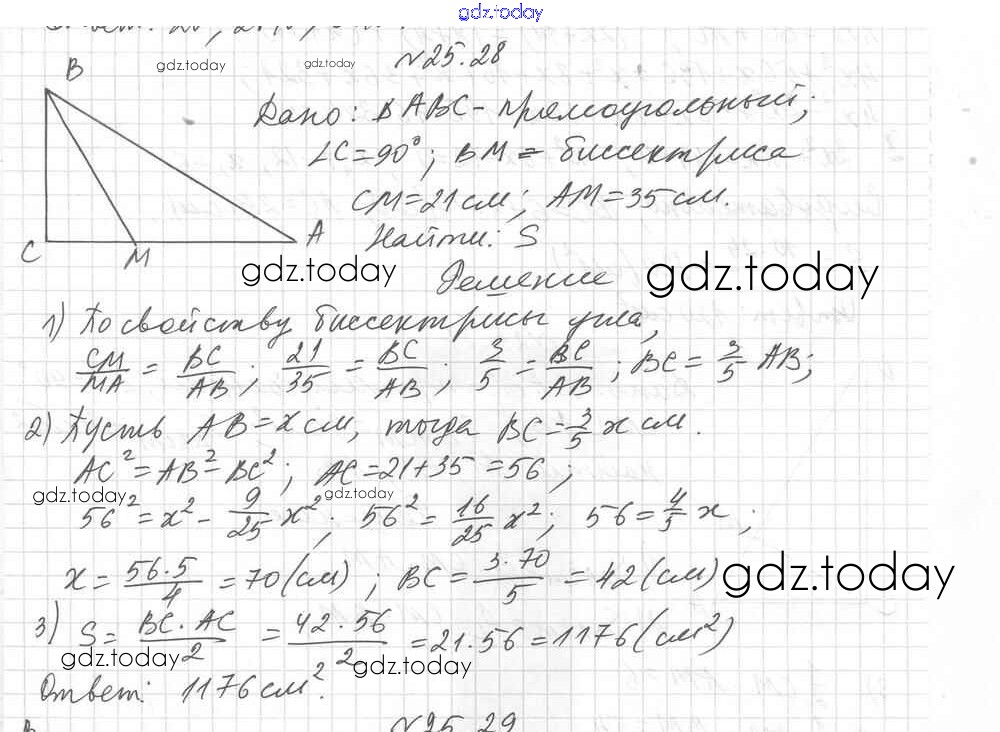 gdz.today
gdz.today gdz.today
№25.28
Дано: ΔABC - прямоугольный;
∠C=90°; BM - биссектриса
CM=21 см; AM=35 см.
Найти: S
gdz.today gdz.today
Решение
B
C M A
1) По свойству биссектрисы угла,
CM/MA = BC/AB; 21/35 = BC/AB; 3/5 = BC/AB; BC = 3/5 AB;
2) Пусть AB=x см, тогда BC=3/5 x см.
AC²=AB²-BC²; AC=21+35=56;
gdz.today gdz.today
56²=x²-9/25 x²; 56²=16/25 x²; 56=4/5 x;
x=56·5/4=70(см); BC=3·70/5=42(см)
gdz.today
3) S=BC·AC/2=42·56/2=21·56=1176(см²)
gdz.today gdz.today
Ответ: 1176 см².
№25.29